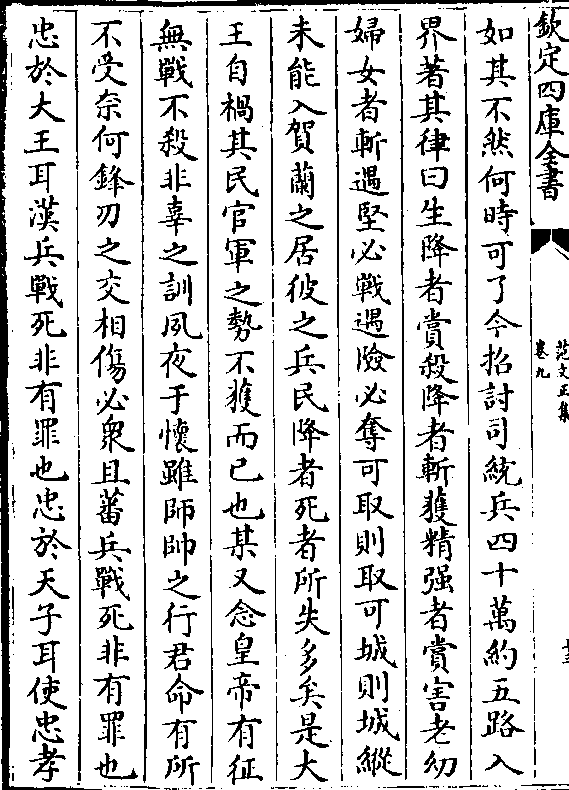 欽定四庫全書
范文正集
卷九
如其不然何時可了今招討司統兵四十萬約五路入
界著其律曰生降者賞殺降者斬獲精强者賞害老幼
婦女者斬遇堅必戰遇險必奪可取則取可城則城縱
未能入賀蘭之居彼之兵民降者死者所失多矣是大
王自禍其民官軍之勢不獲而已也某又念皇帝有征
無戰不殺非辜之訓夙夜于懷雖師帥之行君命有所
不受奈何鋒刃之交相傷必衆且蕃兵戰死非有罪也
忠於大王耳漢兵戰死非有罪也忠於天子耳使忠孝